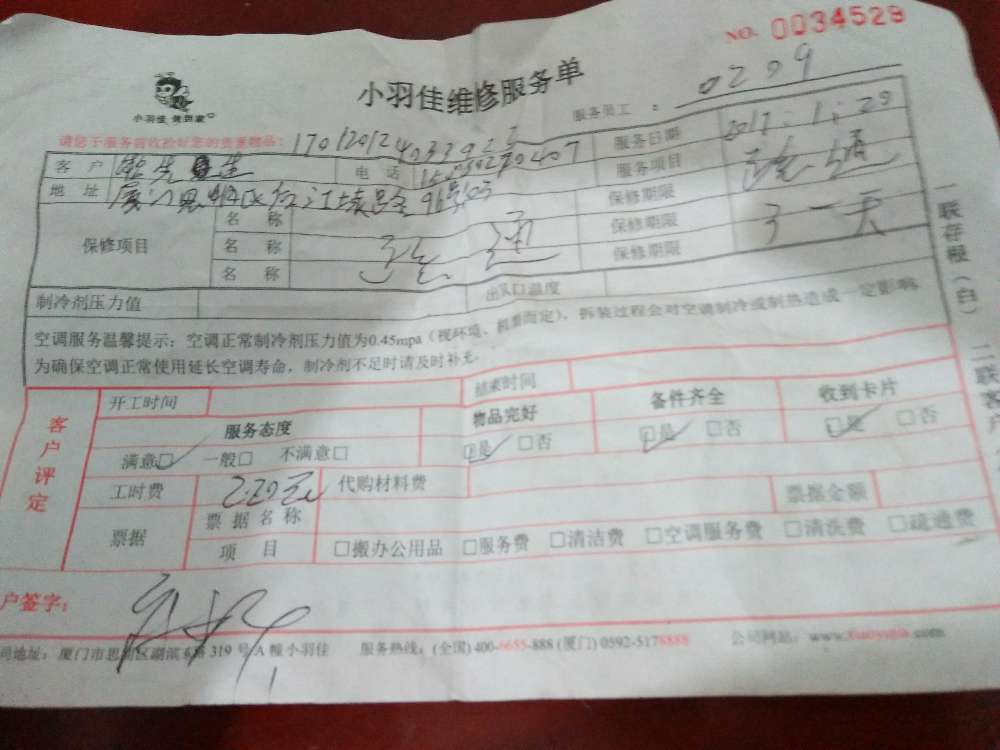 NO. 0034529
小羽佳维修服务单
小羽佳 做到家
服务员工 : 0209
请您于服务前收捡好您的贵重物品:
客户 生 电话 服务日期 2017.1.29
地址 厦门思明区 96号 服务项目 疏通
保修项目 名称 保修期限
名称 疏通 保修期限 一天
名称 保修期限
制冷剂压力值 出风口温度
空调服务温馨提示:空调正常制冷剂压力值为0.45mpa(视环境、机器而定),拆装过程会对空调制冷或制热造成一定影响,
为确保空调正常使用延长空调寿命,制冷剂不足时请及时补充。
客户评定
开工时间 结束时间
服务态度 物品完好 备件齐全 收到卡片
满意□ 一般□ 不满意□ □是 □否 □是 □否 □是 □否
工时费 220元 代购材料费 票据金额
票据 票据名称
项目 □搬办公用品 □服务费 □清洁费 □空调服务费 □清洗费 □疏通费
户签字:
司地址:厦门市思明区湖滨 319号A幢小羽佳 服务热线:(全国)400-6655-888 (厦门)0592-5178888 公司网站:www. .com
一联存根(白) 二联客户